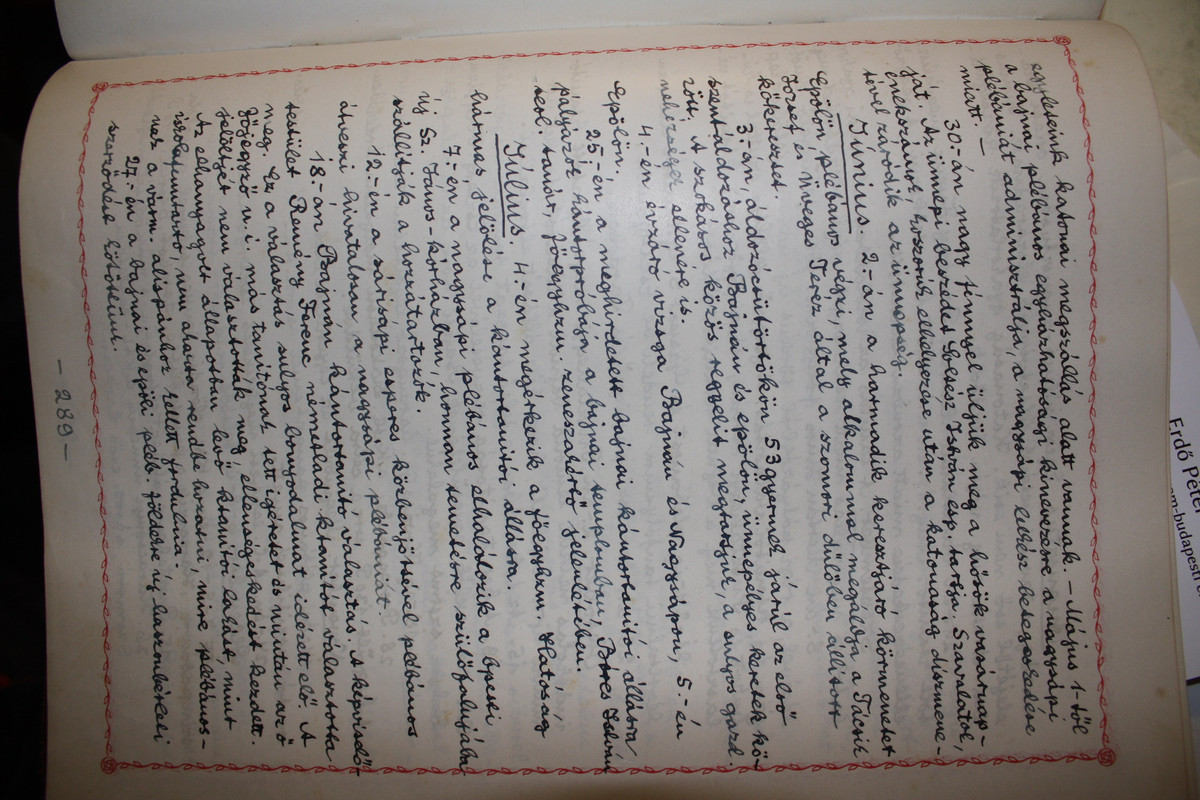 egyleteink katonai megszállás alatt vannak. – Május 1-től
a bajnai plébános egyházhatósági kinevezésre a nagysápi
plébániát adminisztrálja, a nagysápi lelkész betegeskedése
miatt. —
30-án nagy fénnyel üljük meg a hősök vasárnap-
ját. Az ünnepi beszédet István esp. tartja. Szavalatok,
énekszámok, koszorúk elhelyezése után a katonaság díszmene-
tével záródik az ünnepség.
Június. 2.-án a harmadik keresztjáró körmenetet
Epölön plébános végzi, mely alkalommal megáldja a
József és Üveges Teréz által a szomori dülőben állított
kőkeresztet.
3.-án, áldozócsütörtökön 53 gyermek járul az első
szentáldozáshoz Bajnán és epölön, ünnepélyes keretek kö-
zött. A szokásos közös reggelit megtartjuk, a sulyos gazd.
nehézségek ellenére is.
4.-én évzáró vizsga Bajnán és Nagysápon, 5.-én
Epölön.
25-én a meghirdetett bajnai kántortanítói állásra
pályázók kántorpróbája a bajnai templomban, István
tanár, főegyhm. zeneszakértő jelenlétében.
Július. 4.-én megérkezik a főegyhm. Hatóság
hármas jelölése a kántortanítói állásra.
7-én a nagysápi plébános elhalálozik a bpesti
új Sz. János-kórházban, honnan temetésre szülőfalujába
szállítják a hozzátartozók.
12.-én a sárisápi esperes közbenjöttével plébános
átveszi hivatalosan a nagysápi plébániát.
18-án Bajnán kántortanító választás. A képviselő-
testület Remény Ferenc németladi ktanítót választotta
meg. Ez a választás sulyos bonyodalmat idézett elő. A
főjegyző u.i. más tanítónak tett igéretet és miután az ő
jelöltjét nem választották meg, ellenségeskedést kezdett.
Az elhanyagolt állapotban levő ktanítói lakást, mint
iskolafenntartó, nem akarta rendbe hozatni, mire plébános-
nak a várm. alispánhoz kellett fordulnia.
27-én a bajnai és epöli pléb. földekre új haszonbérleti
szerződést kötöttünk.
– 289 –
Erdő Péter